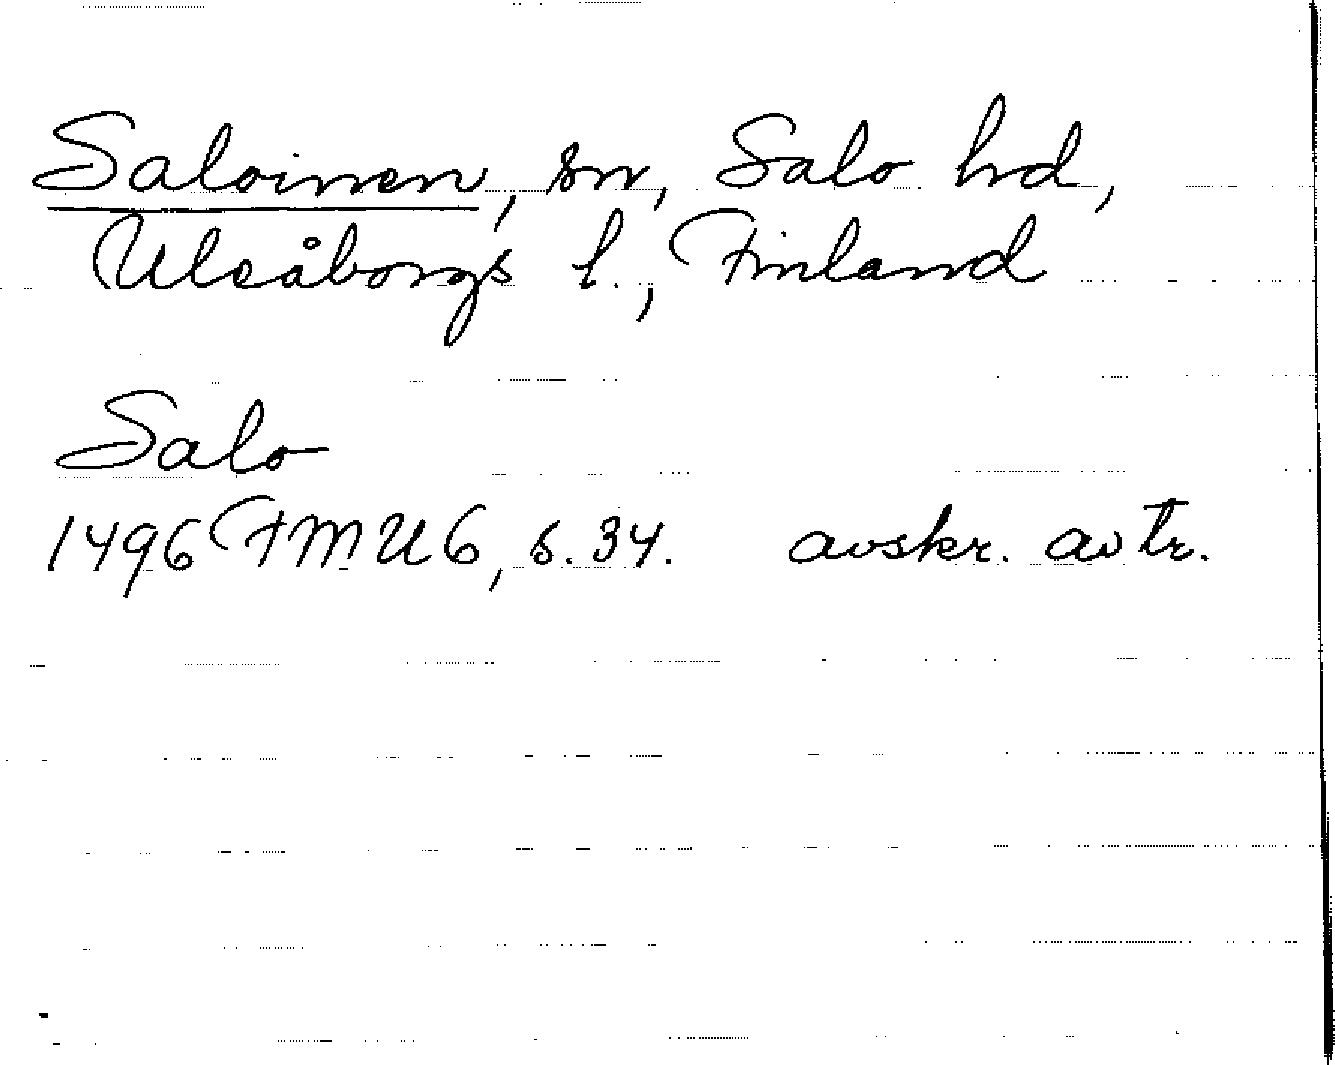 Saloinen, sn, Salo hd,
Uleåborgs l., Finland
Salo
1496 FMU 6, s. 34. avskr. av tr.